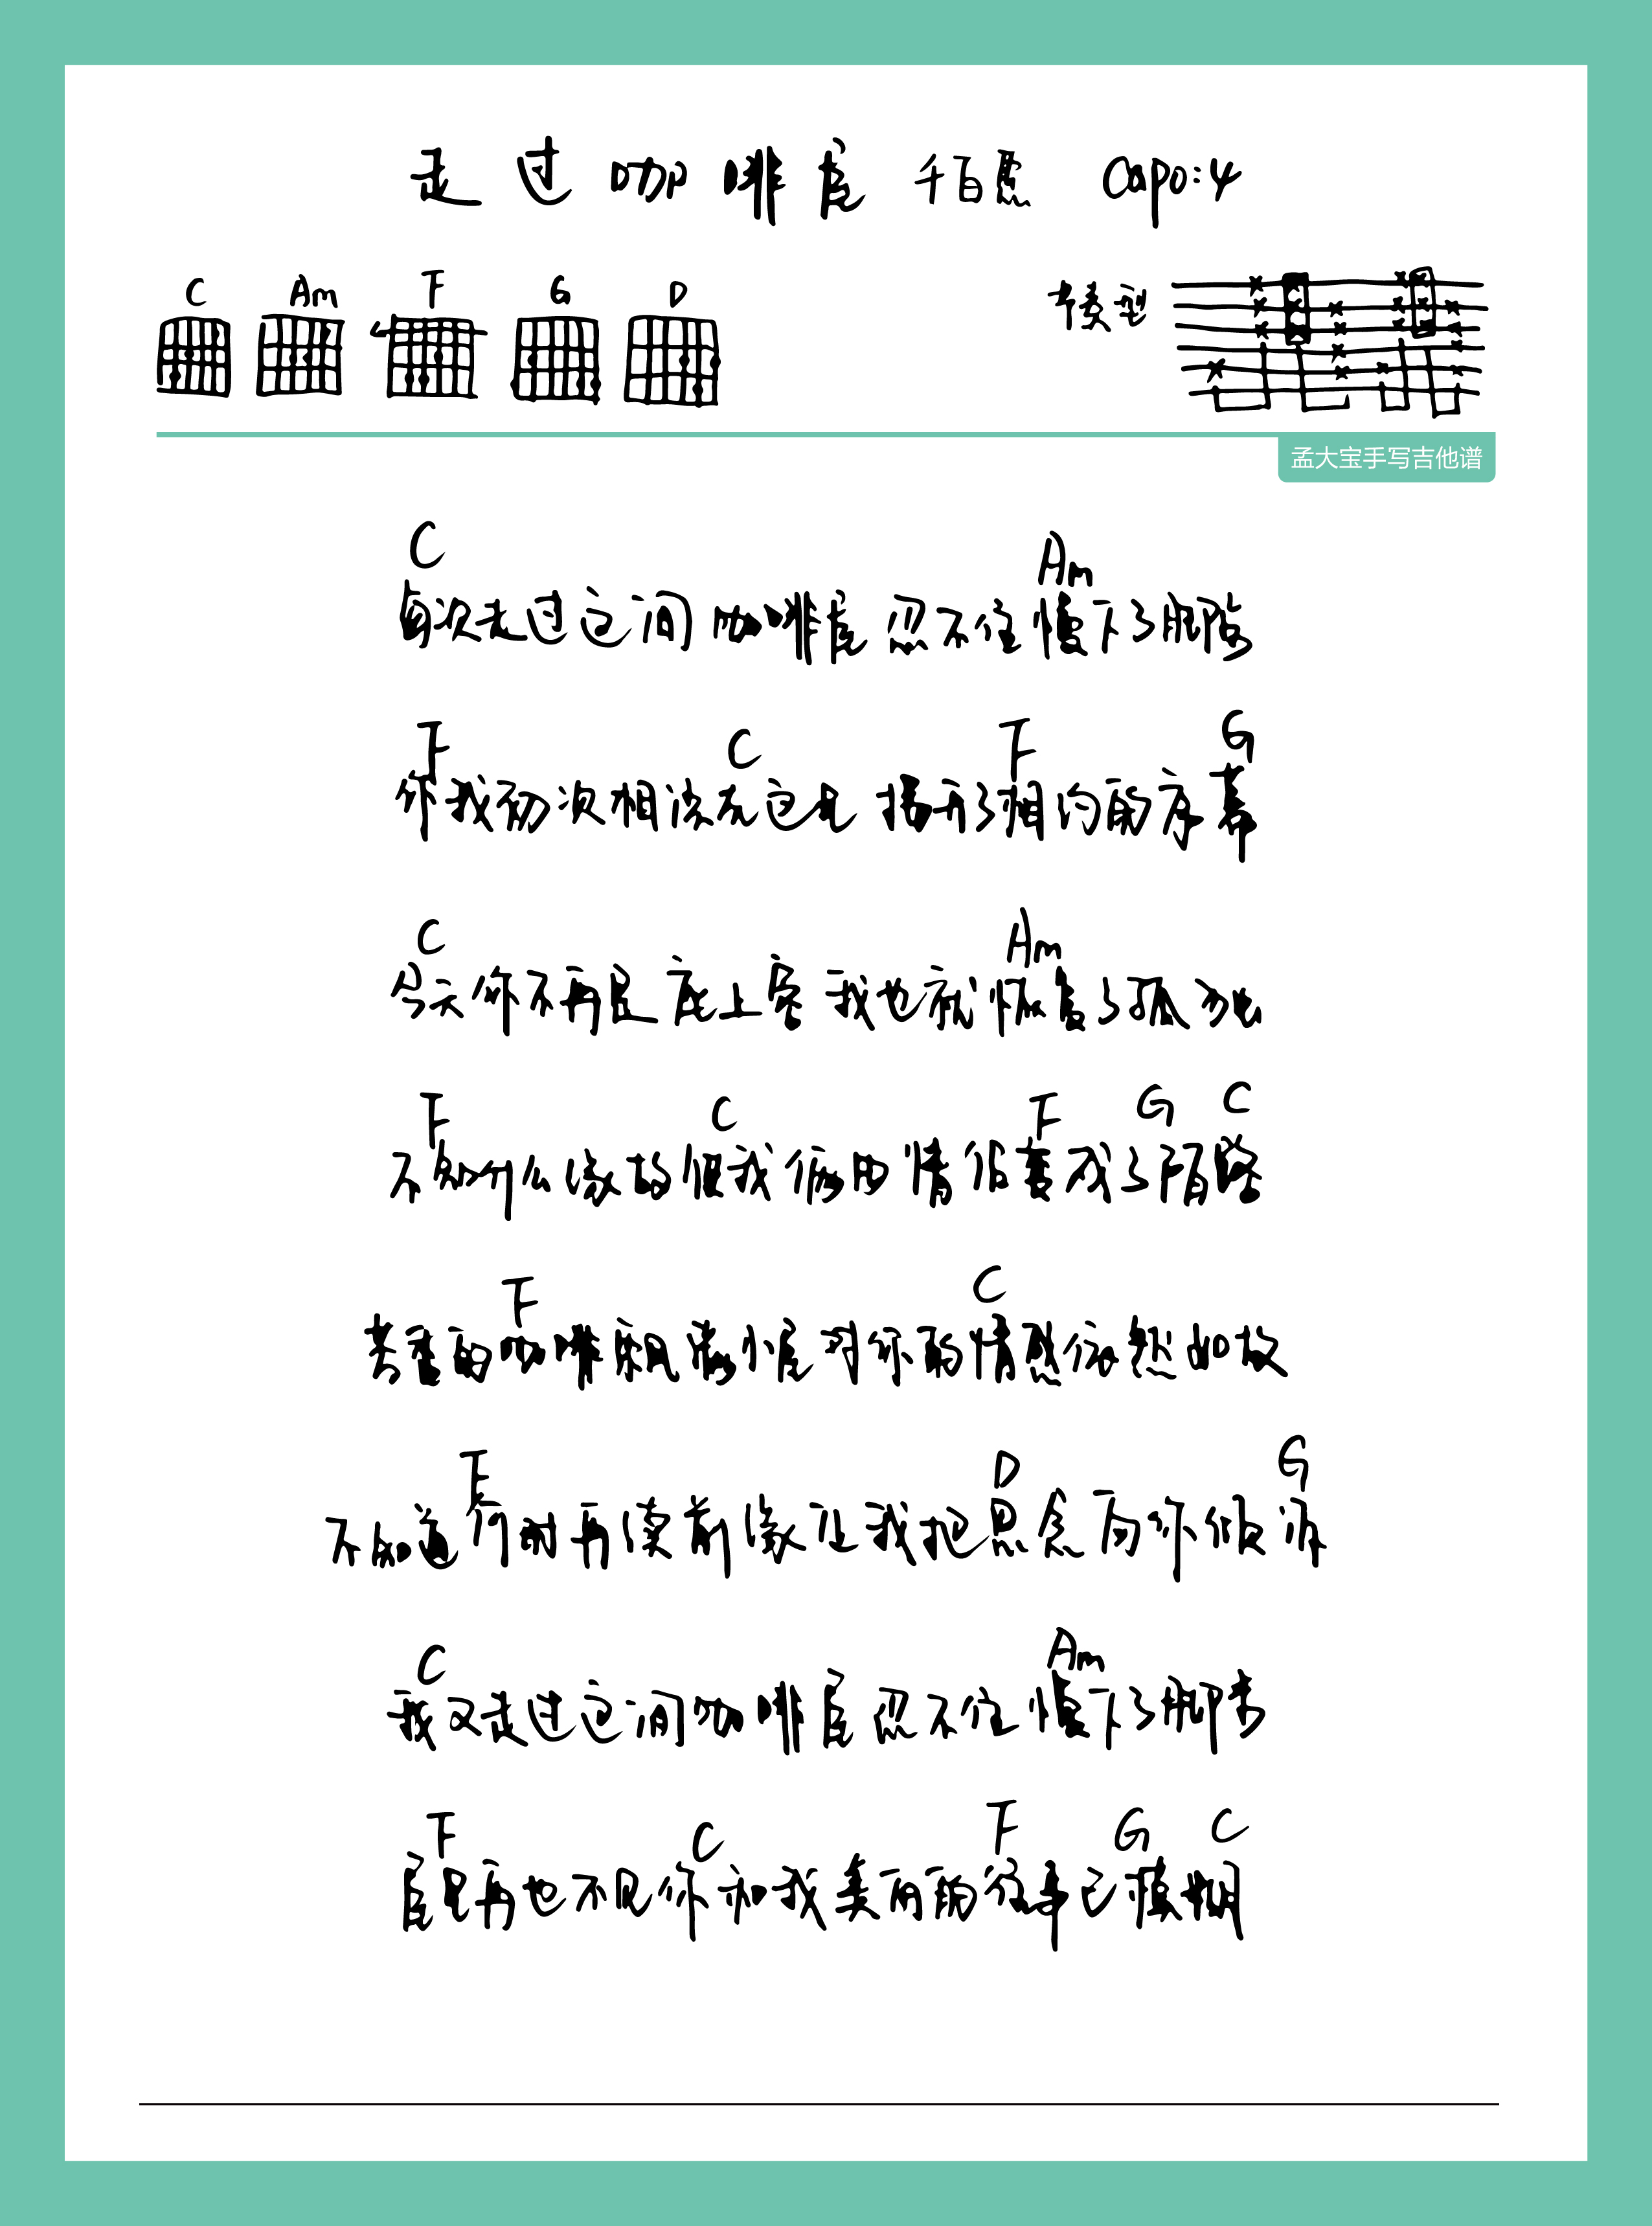 走过咖啡屋 千百惠 Capo:4
C Am F G D 节奏型
孟大宝手写吉他谱
C Am
每次走过这间咖啡屋 忍不住慢下了脚步
F C F G
你我初次相识在这儿 揭开了相约的序幕
C Am
今天你不再是座上客 我也就恢复了孤独
F C F G C
不知什么缘故使我俩的情侣变成了陌路
F C
芳香的咖啡飘满小屋 对你的情感依然如故
F D G
不知道何时再续前缘 让我把思念向你倾诉
C Am
我又走过这间咖啡屋 忍不住慢下了脚步
F C F G C
屋里再也不见你和我 美丽的往事已模糊